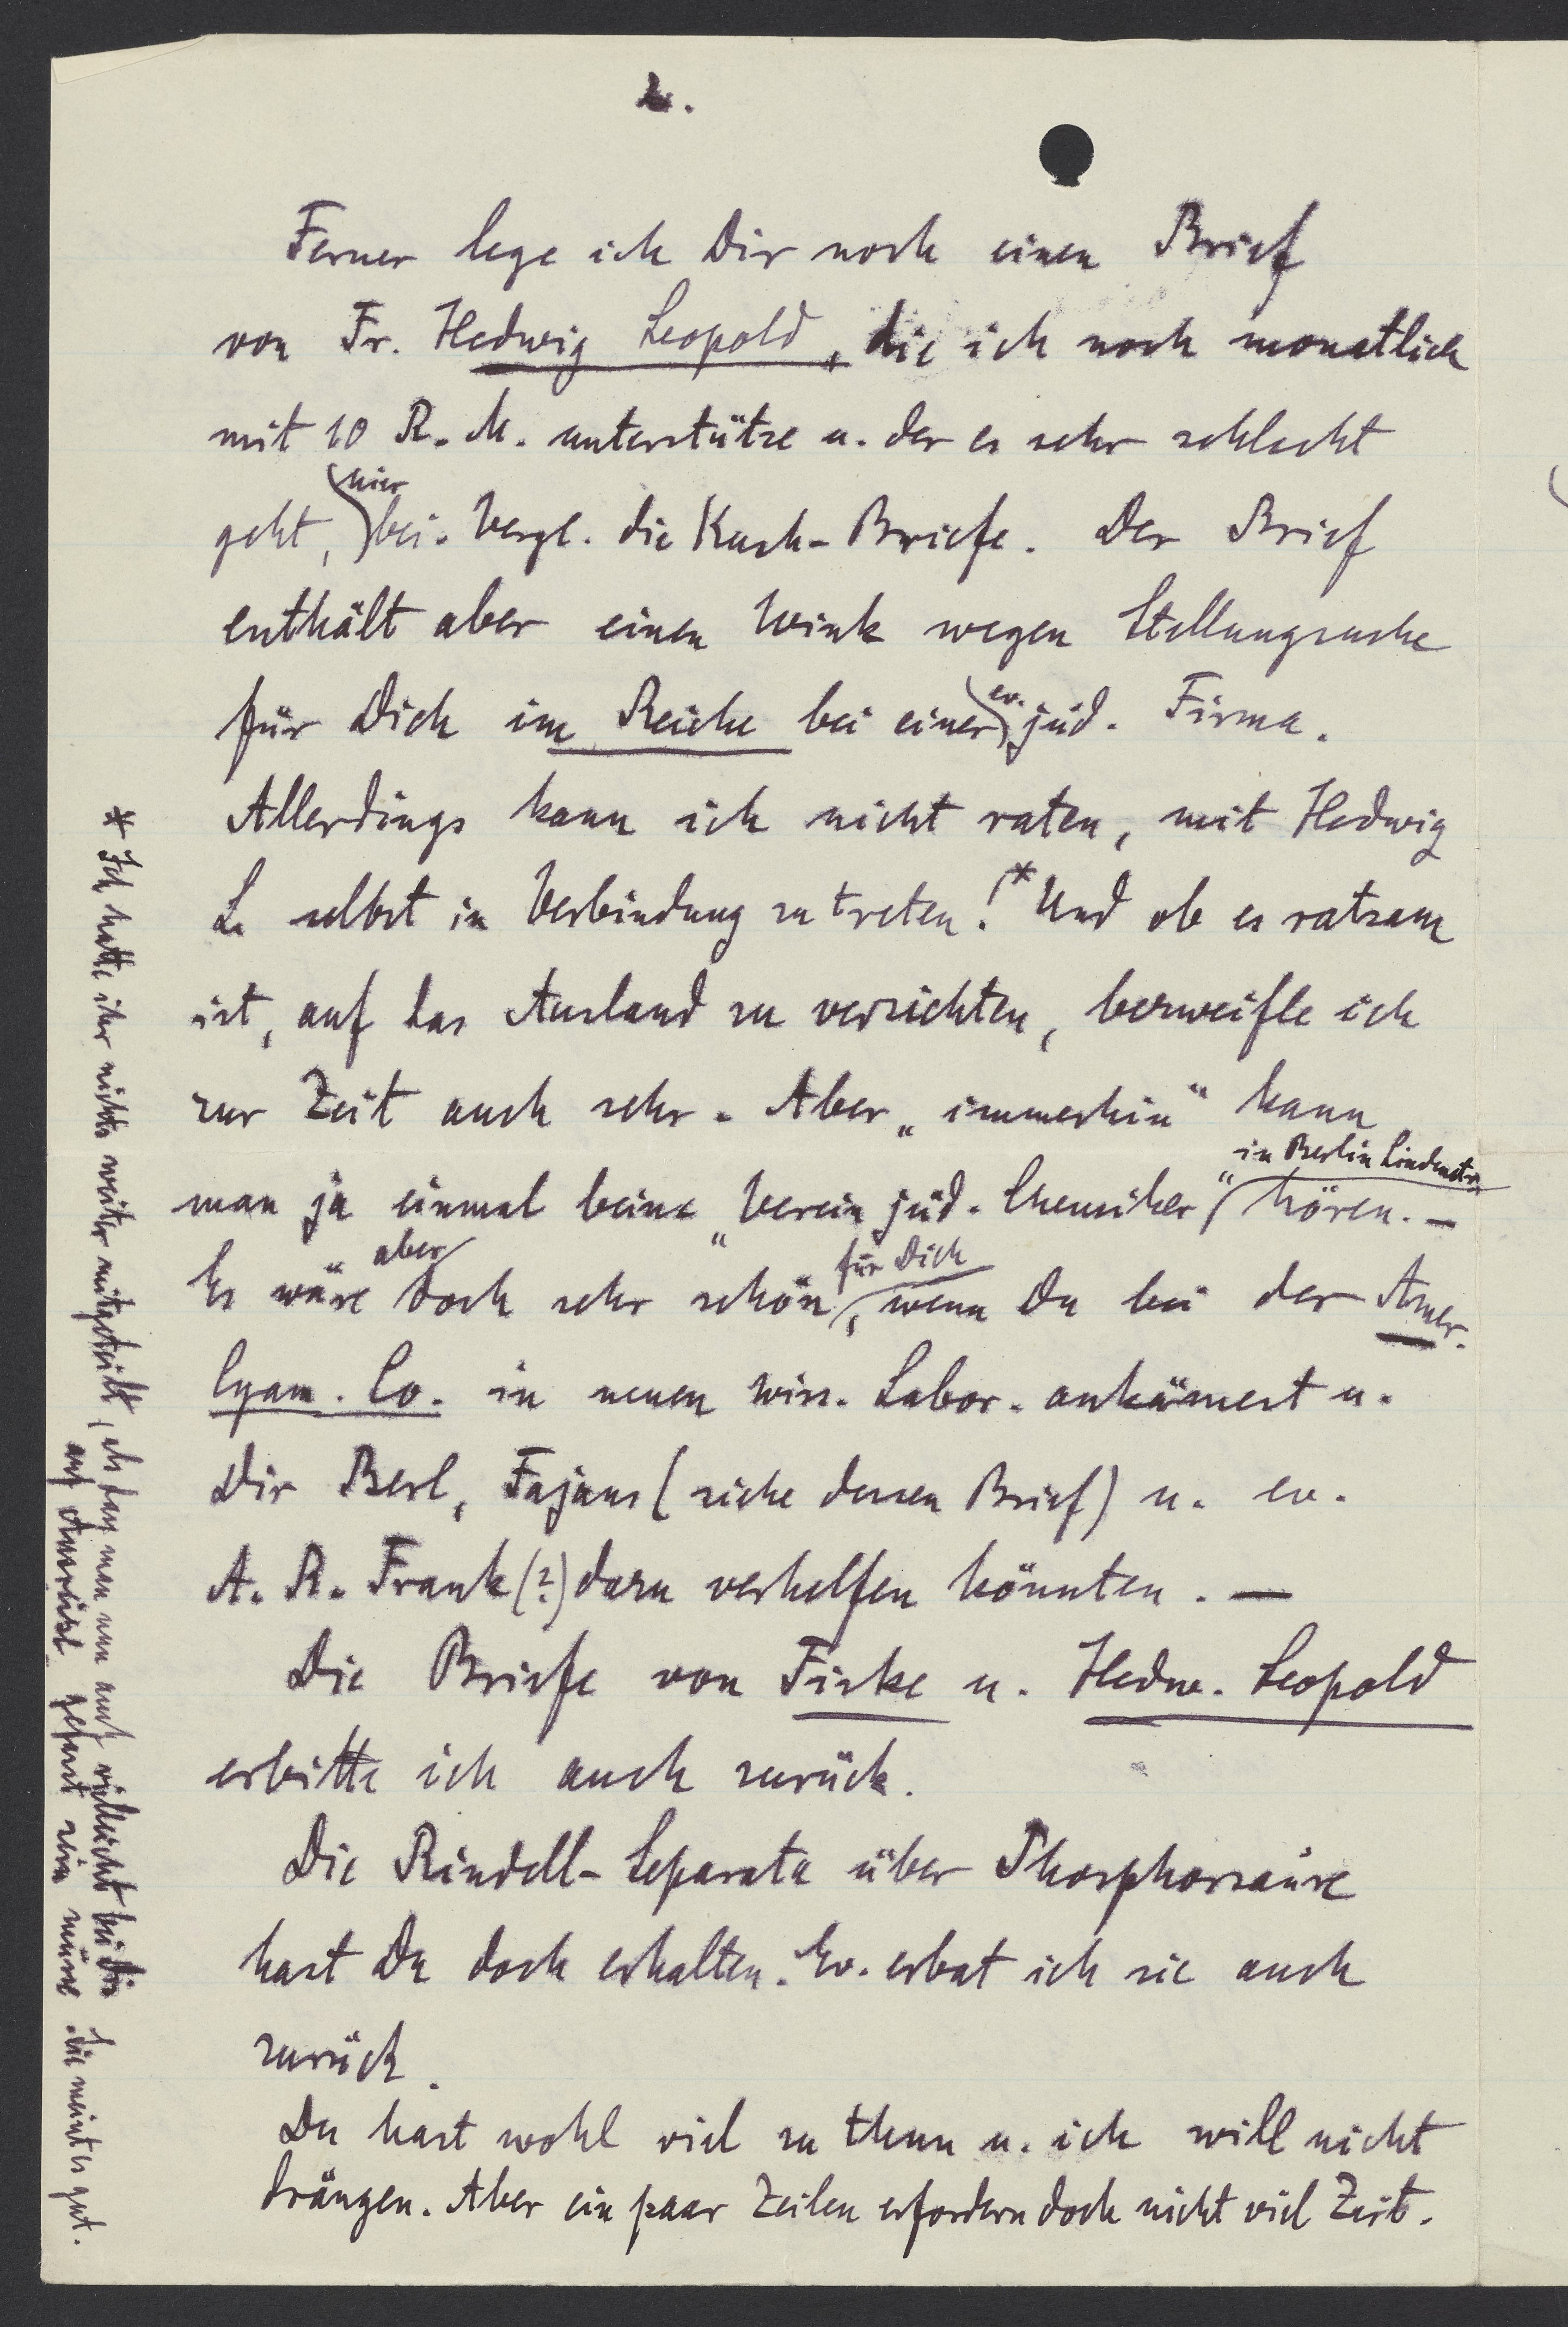 2.
Ferner lege ich Dir noch einen Brief
von Fr. Hedwig Leopold, die ich noch monatlich
mit 10 R. M. unterstütze u. der es sehr schlecht
geht, hier bei. Vergl. die Kuch-Briefe. Der Brief
enthält aber einen Wink wegen Stellungsuche
für Dich im Reiche bei einer ev. jüd. Firma.
Allerdings kann ich nicht raten, mit Hedwig
L. selbst in Verbindung zu treten!* Und ob es ratsam
ist, auf das Ausland zu verzichten, bezweifle ich
zur Zeit auch sehr. Aber „immerhin“ kann
man ja einmal beim „Verein jüd. Chemiker“ in Berlin Lindenstr. hören. —
Es wäre aber doch sehr schön für Dich, wenn Du bei der Amer.
Cyam. Co. in neuen wiss. Labor. ankämest u.
Dir Berl, Fajans (siehe dessen Brief) u. ev.
A. R. Frank (?) dazu verhelfen könnten. —
Die Briefe von Fiske u. Hedw. Leopold
erbitte ich auch zurück.
Die Rindell-Separata über Phosphorsäure
hast Du doch erhalten. Ev. erbat ich sie auch
zurück.
Du hast wohl viel zu thun u. ich will nicht
drängen. Aber ein paar Zeilen erfordern doch nicht viel Zeit.
* Ich hatte ihr nichts weiter mitgeteilt, als daß man nun auch vielleicht bei Dir
auf gefasst sein müsse. Sie meint es gut.